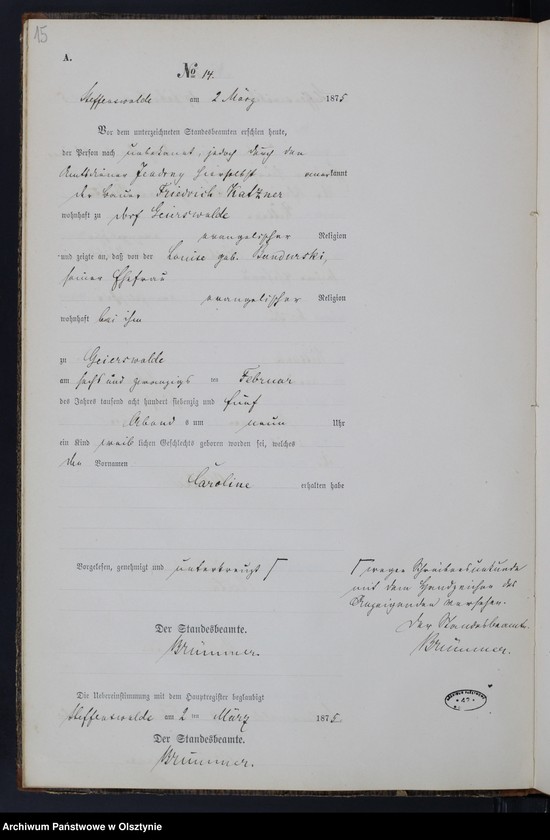 15
A.
No 14.
Steffenswalde am 2 März 1875
Vor dem unterzeichneten Standesbeamten erschien heute,
der Person nach unbekannt, jedoch durch den
Amtsdiener hierselbst anerkannt
der Bauer Friedrich Katzner
wohnhaft zu dorf Geierswalde
evangelischer Religion
und zeigte an, daß von der Louise geb. Bandurski,
seiner Ehefrau
evangelischer Religion
wohnhaft bei ihm
zu Geierswalde
am sechs und zwanzigs ten Februar
des Jahres tausend acht hundert siebenzig und fünf
Abend s um neun Uhr
ein Kind weib lichen Geschlechts geboren worden sei, welches
den Vornamen
Caroline
erhalten habe
Vorgelesen, genehmigt und unterkreuzt
wegen Schreibensunkunde
mit dem Handzeichen des
Anzeigenden versehen.
Der Standesbeamte.
Brümmer.
Der Standesbeamte.
Brümmer.
Die Uebereinstimmung mit dem Hauptregister beglaubigt
Steffenswalde am 2 ten März 1875.
Der Standesbeamte.
Brümmer.
Archiwum Państwowe w Olsztynie